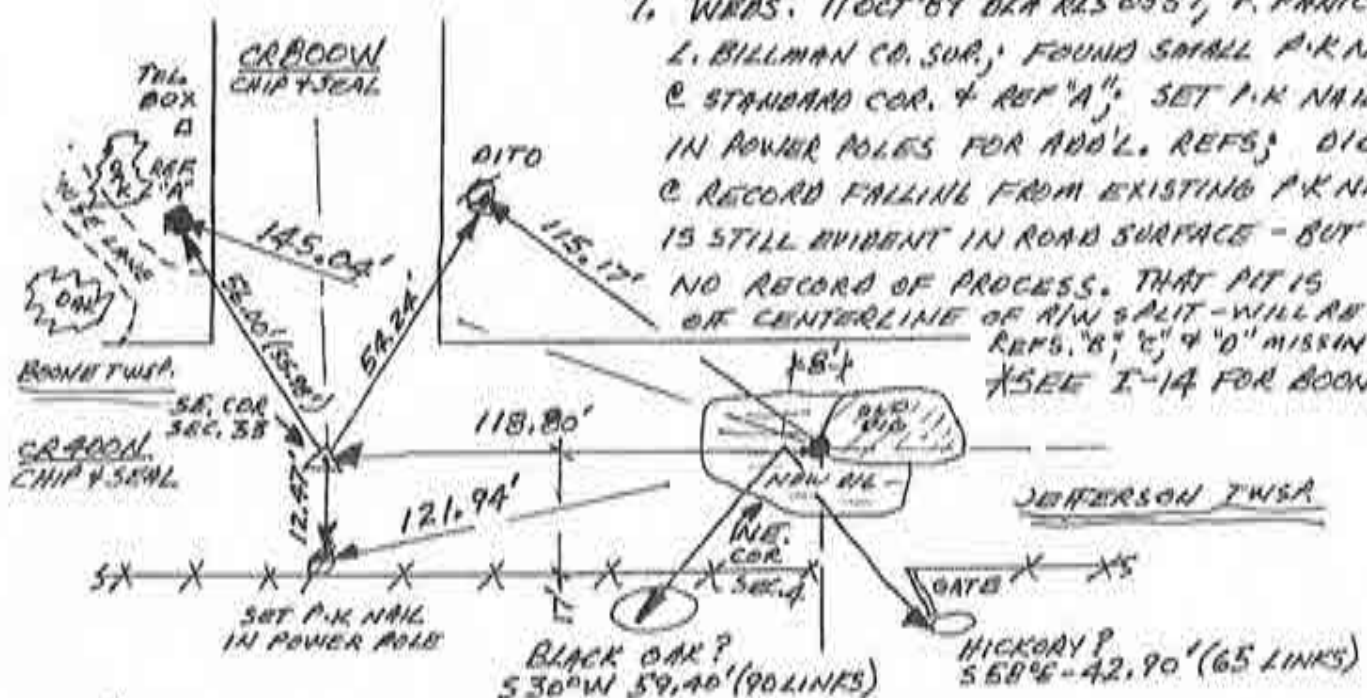 1. WEDS. 11 OCT 89 DLA RLS
L. BILLMAN CO. SUR.; FOUND SMALL P.K N
@ STANDARD COR. & REF "A"; SET P.K NAI
IN POWER POLES FOR ADD'L. REFS; DIG
@ RECORD FALLING FROM EXISTING P.K N
IS STILL EVIDENT IN ROAD SURFACE - BUT
NO RECORD OF PROCESS. THAT PIT IS
OFF CENTERLINE OF R/W SPLIT - WILL RE
REFS. "B", "C", & "D" MISSIN
*SEE I-14 FOR BOON
CR800W
CHIP & SEAL
TEL.
BOX
REF.
"A"
LANE
OAK
DITO
145.04'
115.17'
54.24'
BOONE TWSP.
SE. COR
SEC. 33
CR400N
CHIP & SEAL
118.80'
12.47'
121.94'
8'
OLD
DIG
NEW DIG
JEFFERSON TWSP
NE.
COR
SEC. 4
17'
GATE
SET P.K NAIL
IN POWER POLE
BLACK OAK?
S30°W 59.40' (90 LINKS)
HICKORY?
42.90' (65 LINKS)